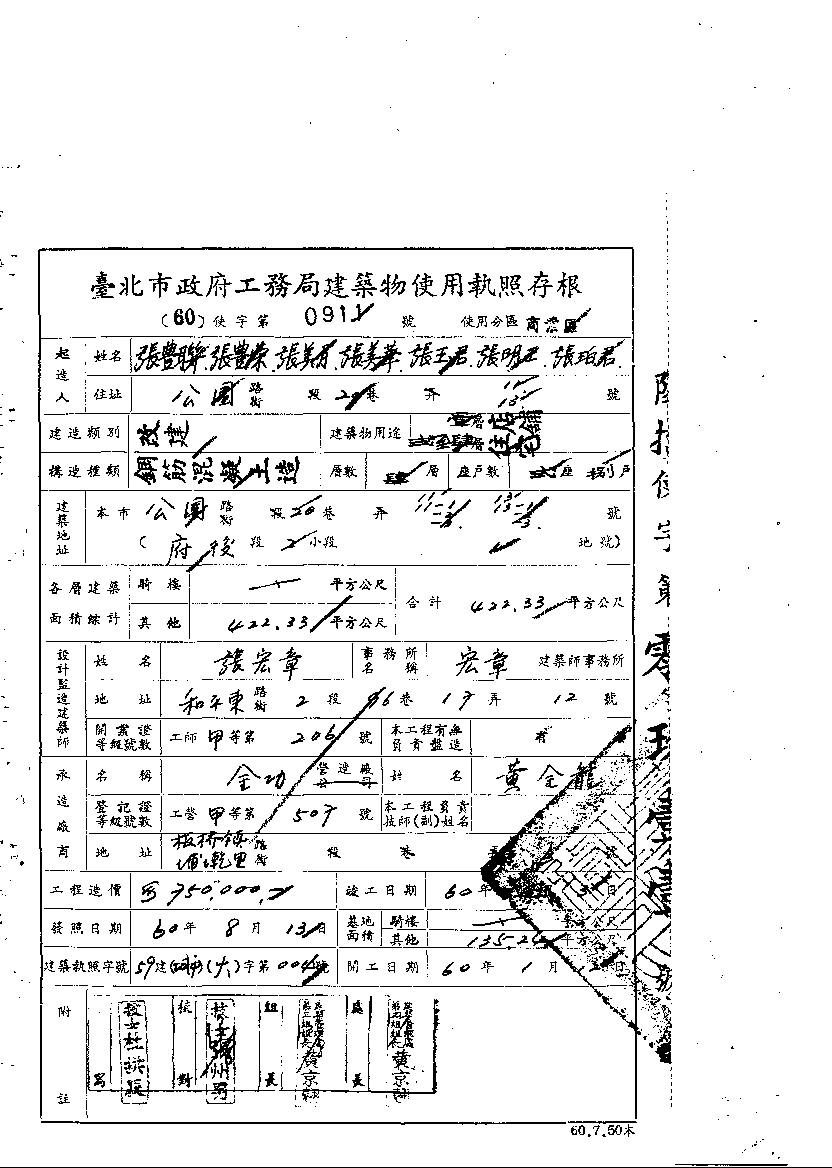 臺北市政府工務局建築物使用執照存根
(60)使字第 0911 號 使用分區 商業區
起造人 姓名 張豊聯 張豊榮 張美 張美華 張玉君 張明 張珀君
住址 公園 路街 段 20巷 弄 號
建造類別 改建 建築物用途 店舖住宅
構造種類 鋼筋混凝土造 層數 肆層 座戶數 座 戶
建築地址 本市 公園 路街 段 20巷 弄 號
(府後段 2小段 地號)
各層建築面積總計 騎樓 平方公尺 合計 422.33 平方公尺
其他 422.33 平方公尺
設計監造建築師 姓名 張宏章 事務所名稱 宏章 建築師事務所
地址 和平東 路街 2 段 96巷 17弄 12 號
開業證等級號數 工師 甲 等第 206 號 本工程有無負責監造 有
承造廠商 名稱 金功 營造廠公司 姓名 黃金龍
登記證等級號數 工營 甲 等第 507 號 本工程負責技師(副)姓名
地址 板橋鎮埔墘里 路街 段 巷
工程造價 750,000 竣工日期 60年 日
發照日期 60年 8月 13日 基地面積 騎樓 平方公尺
其他 135.24 平方公尺
建築執照字號 59建 字第 004號 開工日期 60年 1月 12日
附註
寫 校對 組長 處長
黃京翰 黃京翰
60.7.50本
使字第零玖壹壹號